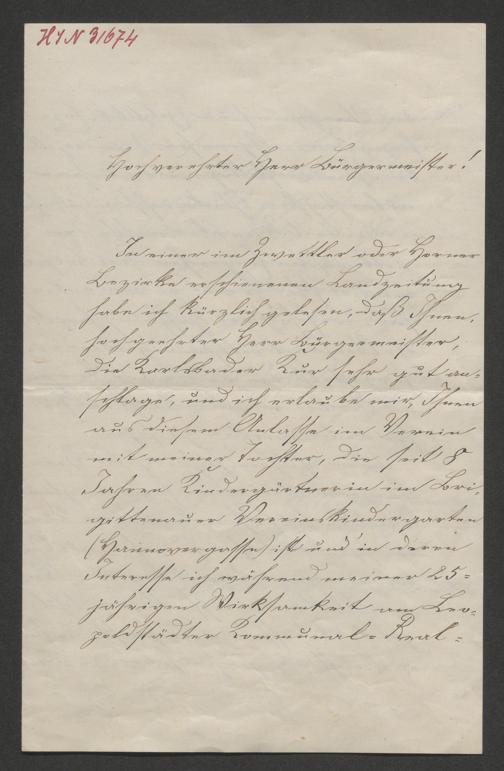 HIN 31674
Hochverehrter Herr Bürgermeister!
In einer im Zwettler oder Horner
Bezirke erschienenen Landzeitung
habe ich kürzlich gelesen, daß Ihnen,
hochgeehrter Herr Bürgermeister,
die Karlsbader Kur sehr gut an-
schlage, und ich erlaube mir, Ihnen
aus diesem Anlasse im Verein
mit meiner Tochter, die seit 8
Jahren Kindergärtnerin im Bri-
gittenauer Vereinskindergarten
(Hannovergasse) ist und in deren
Interesse ich während meiner 25-
jährigen Wirksamkeit am Leo-
poldstädter Kommunal-Real-